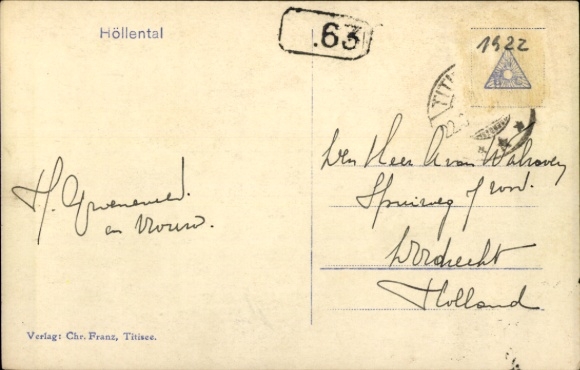 Höllental
.63
1922
TITI
22.
Den Heer A van Walraven
Spuiweg / rood.
Dordrecht
Holland
H. Groeneveld.
en Vrouw.
Verlag: Chr. Franz, Titisee.